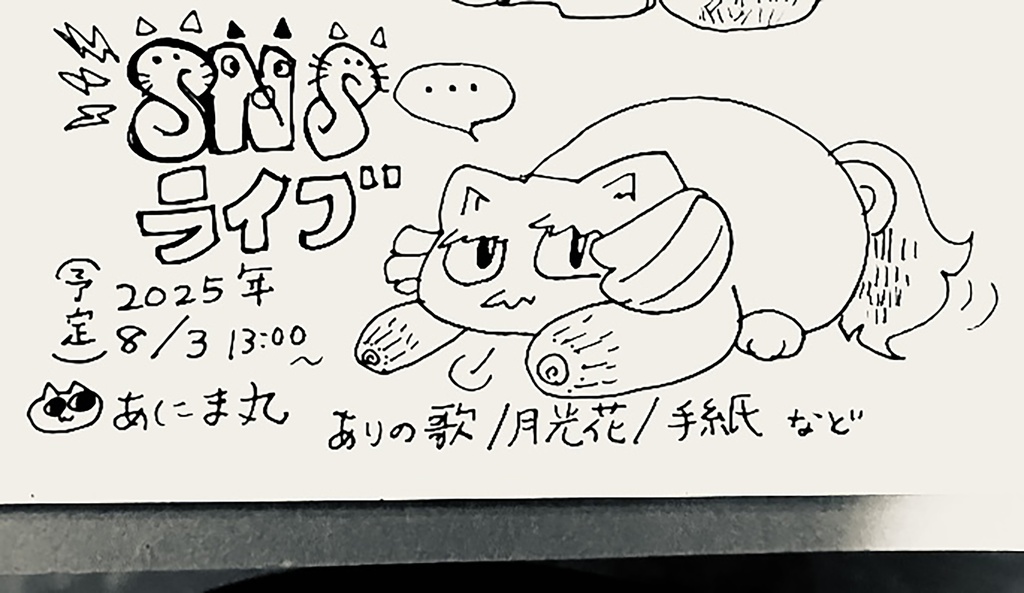 SNS
ライブ
(予定) 2025年
8/3 13:00～
あにま丸
ありの歌/月光花/手紙 など
...